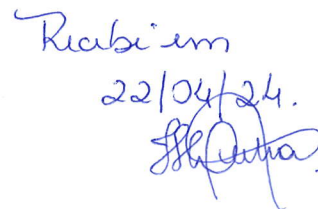 Recebi em
22/04/24.